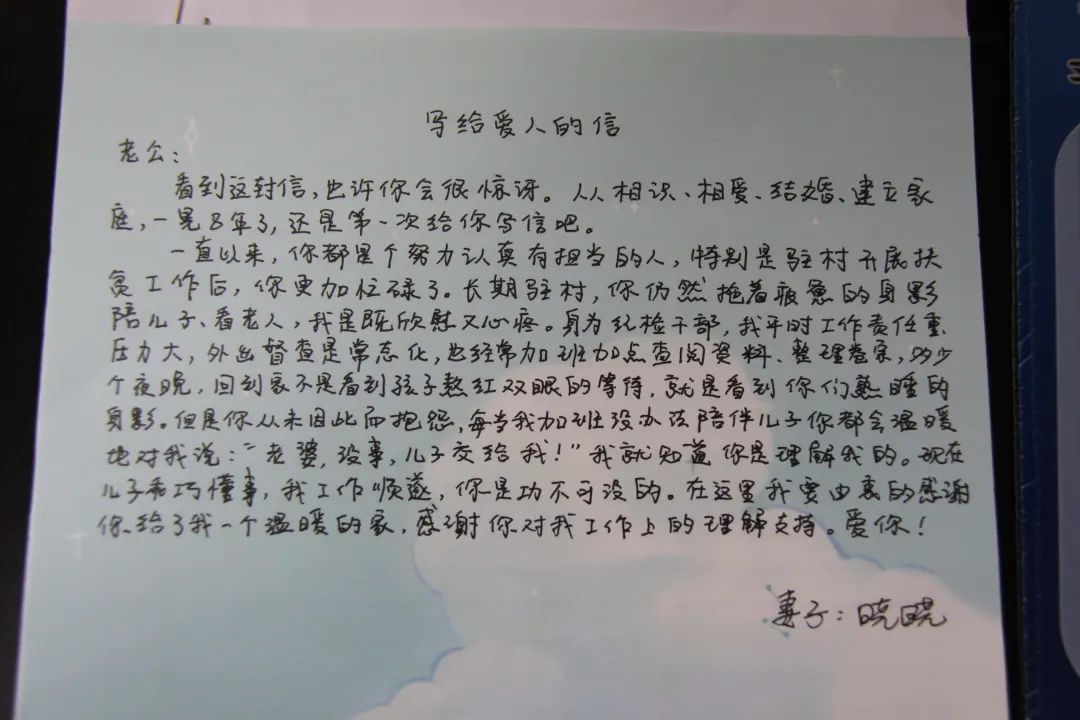 写给爱人的信
老公：
看到这封信，也许你会很惊讶。人从相识、相爱、结婚、建立家
庭，一晃8年了，还是第一次给你写信吧。
一直以来，你都是个努力认真有担当的人，特别是驻村开展扶
贫工作后，你更加忙碌了。长期驻村，你仍然拖着疲惫的身影
陪儿子、看老人，我是既欣慰又心疼。身为纪检干部，我平时工作责任重、
压力大，外出督查是常态化，也经常加班加点查阅资料、整理卷宗，多少
个夜晚，回到家不是看到孩子熬红双眼的等待，就是看到你们熟睡的
身影。但是你从未因此而抱怨，每当我加班没办法陪伴儿子你都会温暖
地对我说：“老婆，没事，儿子交给我！”我就知道你是理解我的。现在
儿子乖巧懂事，我工作顺遂，你是功不可没的。在这里我要由衷的感谢
你给了我一个温暖的家，感谢你对我工作上的理解支持。爱你！
妻子：晓晓